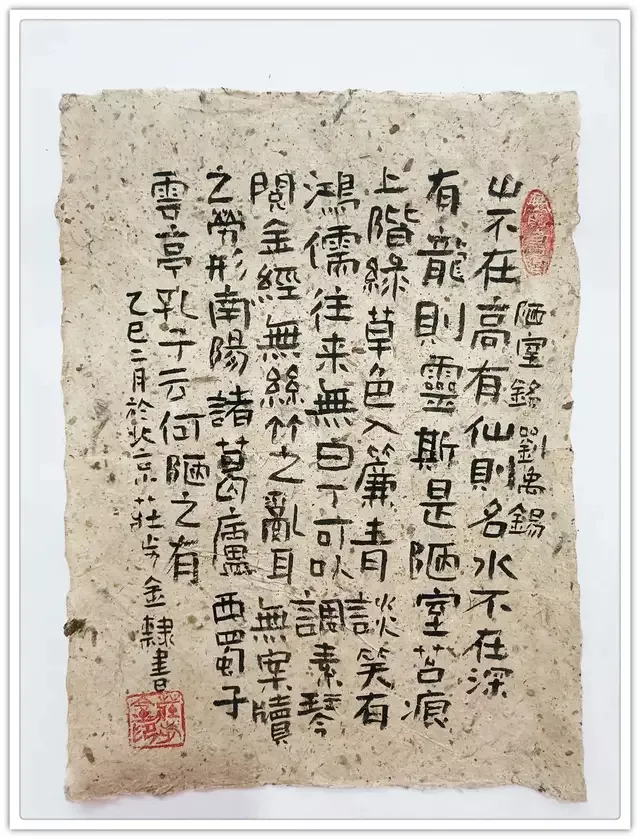 陋室銘劉禹錫
山不在高有仙則名水不在深
有龍則靈斯是陋室苔痕
上階綠草色入簾青談笑有
鴻儒往来無白丁可以調素琴
閱金經無絲竹之亂耳無案牘
之勞形南陽諸葛廬西蜀子
雲亭孔子云何陋之有
乙巳二月於北京莊步金隸書